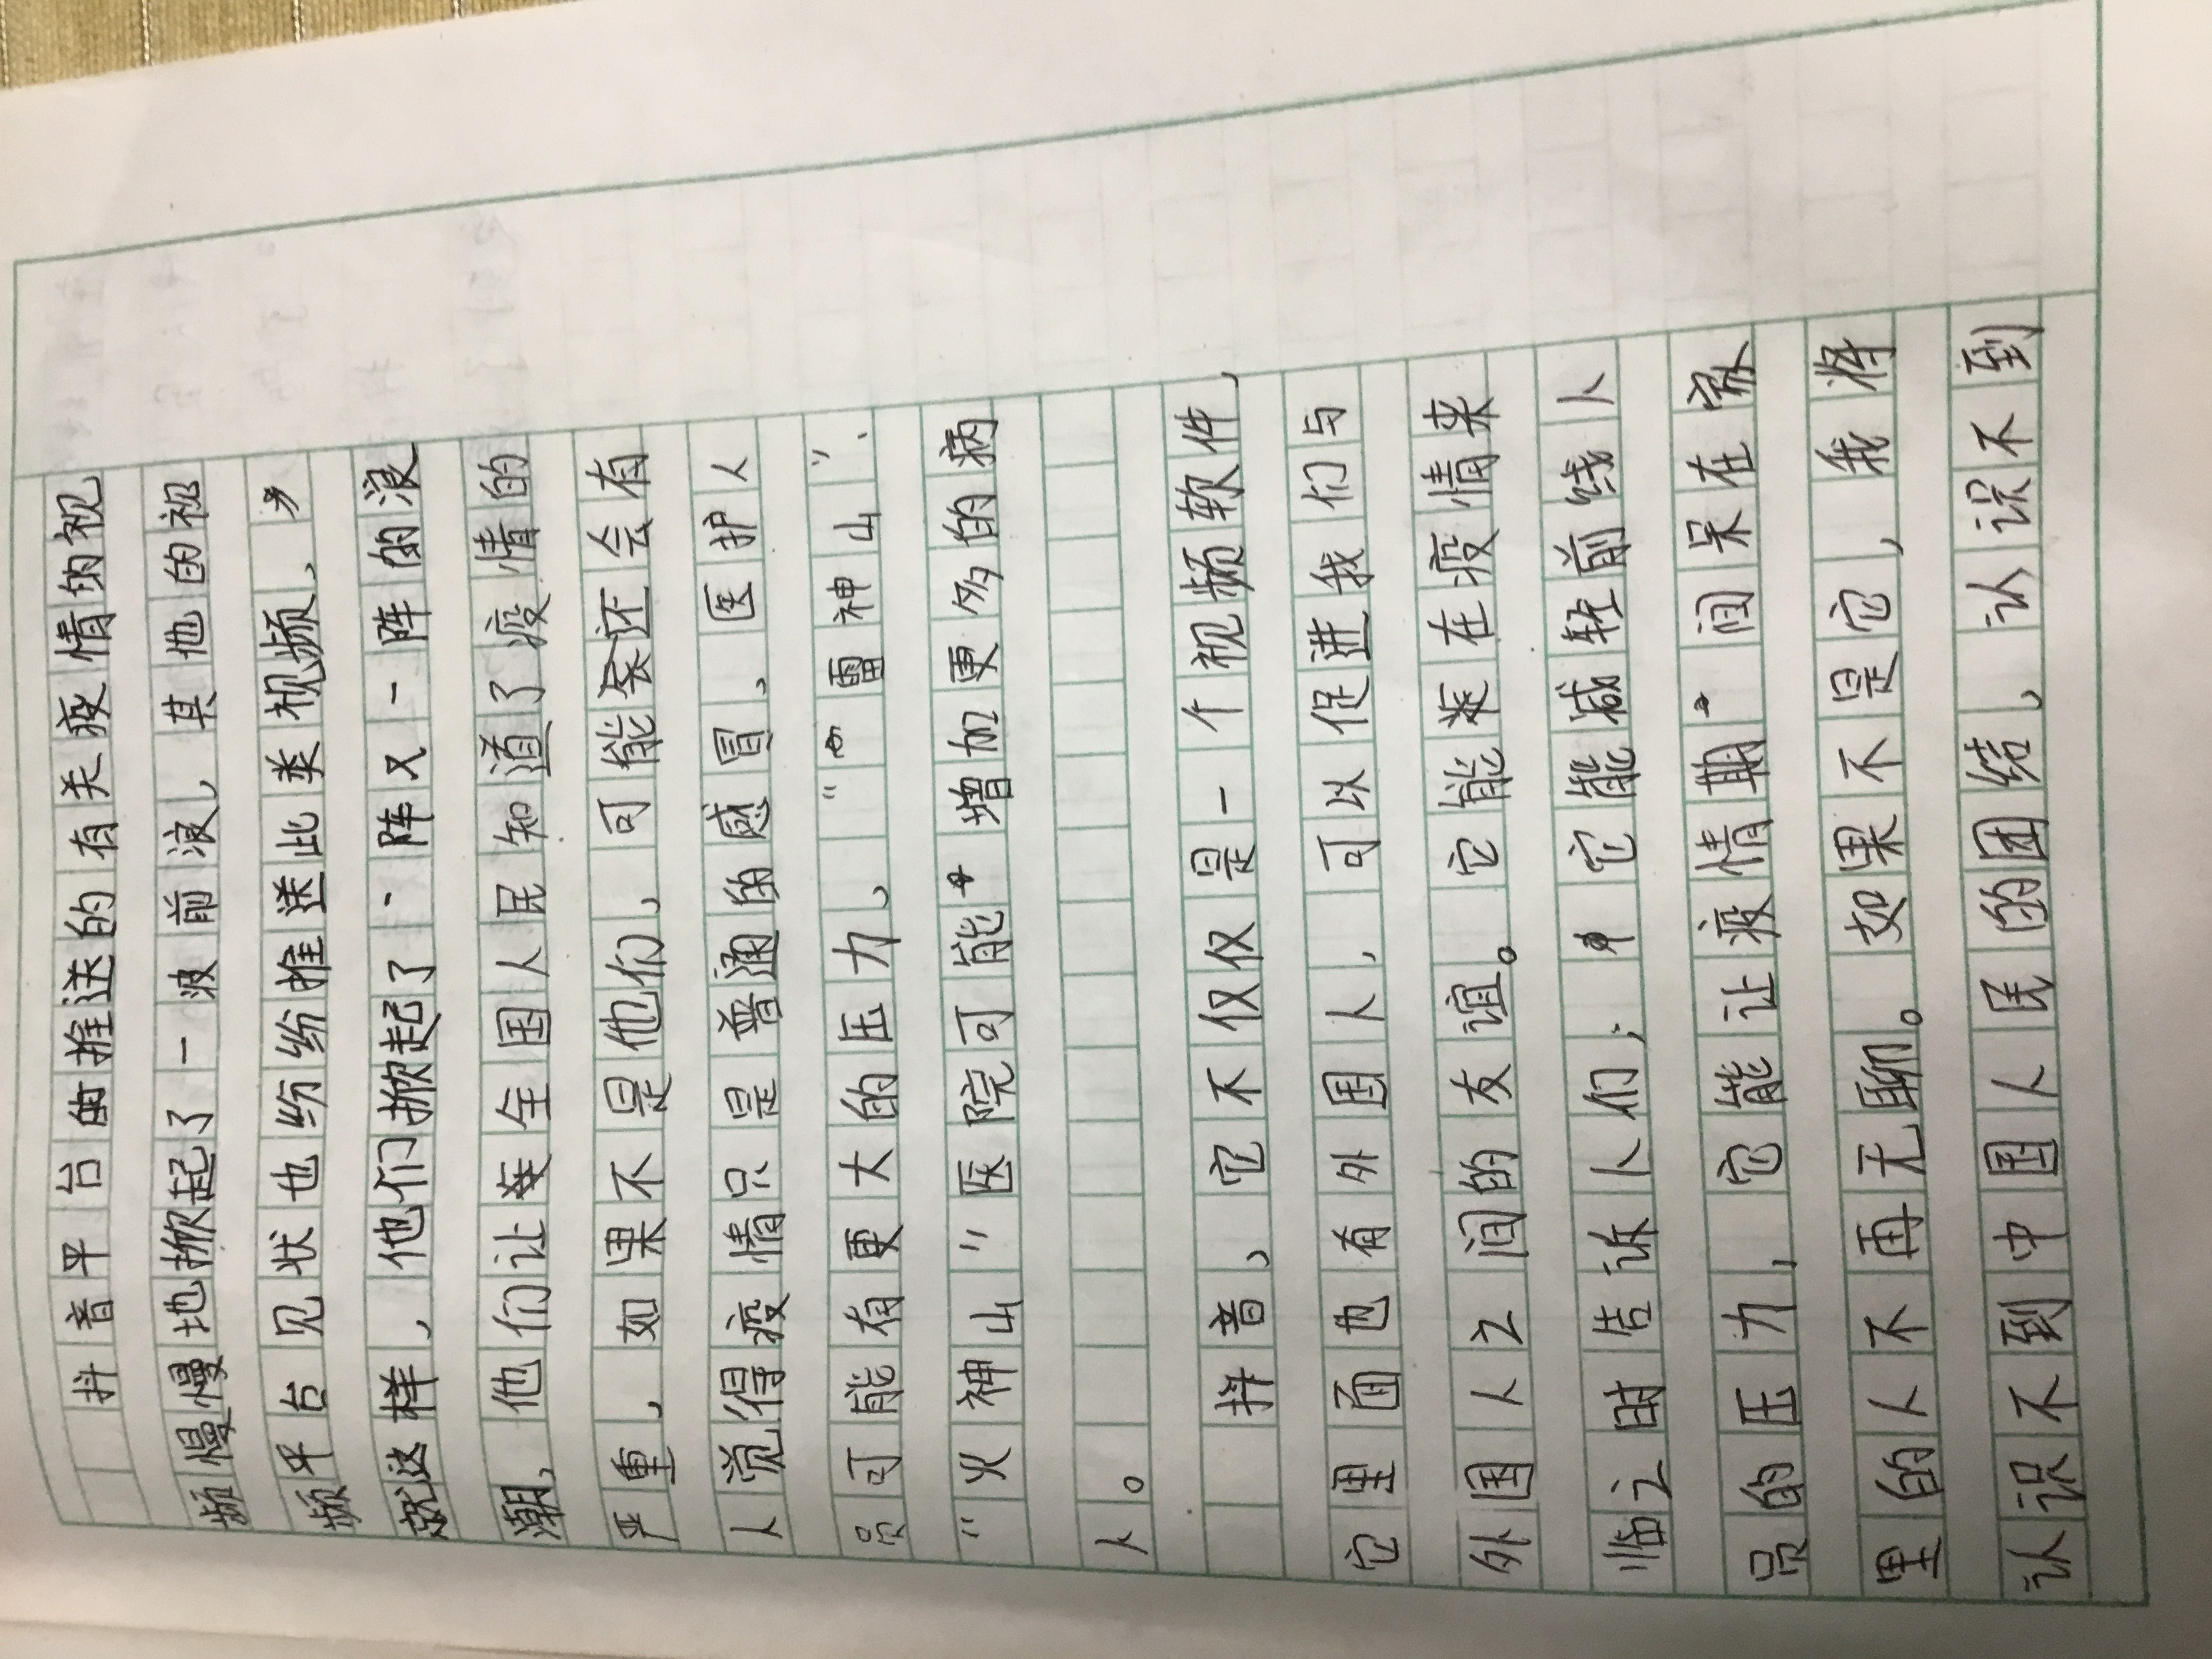 抖音平台的推送的有关疫情的视
频慢慢地掀起了一波前浪，其他的视
频平台见状也纷纷推送此类视频，
就这样，他们掀起了一阵又一阵的浪
潮，他们让全国人民知道了疫情的
严重，如果不是他们，可能还会有
人觉得疫情只是普通的感冒，医护人
员可能有更大的压力，“雷神山”、
“火神山”医院可能增加更多的病
人。
抖音，它不仅仅是一个视频软件，
它里面也有外国人，可以促进我们与
外国人之间的友谊。它能在疫情来
临之时告诉人们；它能减轻前线人
员的压力，它能让疫情期间呆在家
里的人不再无聊。如果不是它，我将
认识不到中国人民的团结，认识不到